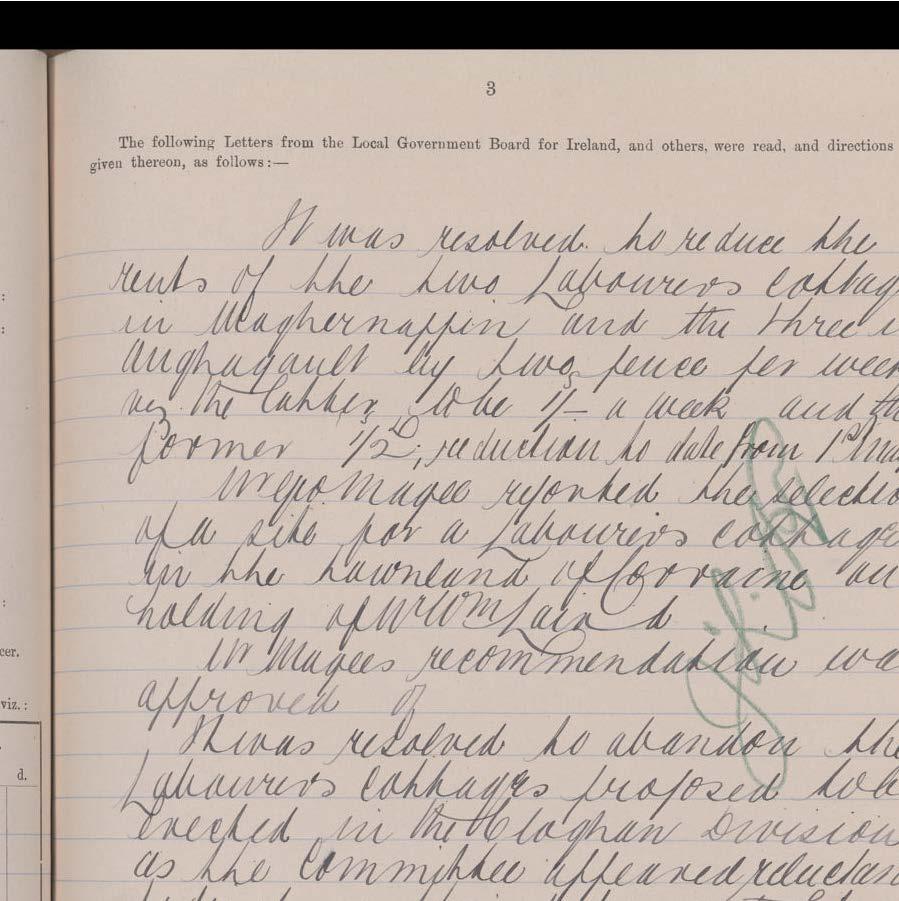 3
The following Letters from the Local Government Board for Ireland, and others, were read, and directions
given thereon, as follows:—
It was resolved to reduce the
rents of the two Labourers cottag
in Maghernappin and the three i
Aughagault by two pence per wee
viz the latter to be 1/- a week and th
former 1/2; reduction to date from 1st
Mr Geo. Magee reported the selectio
of a site for a Labourers cottage
in the townland of Corraine on
holding of Mr Wm Laird
Mr Magees recommendation wa
approved of
It was resolved to abandon the
Labourers cottages proposed to b
erected in the Cloghan Division
as the Committee appeared reluctan
:
:
:
cer.
viz.:
d.